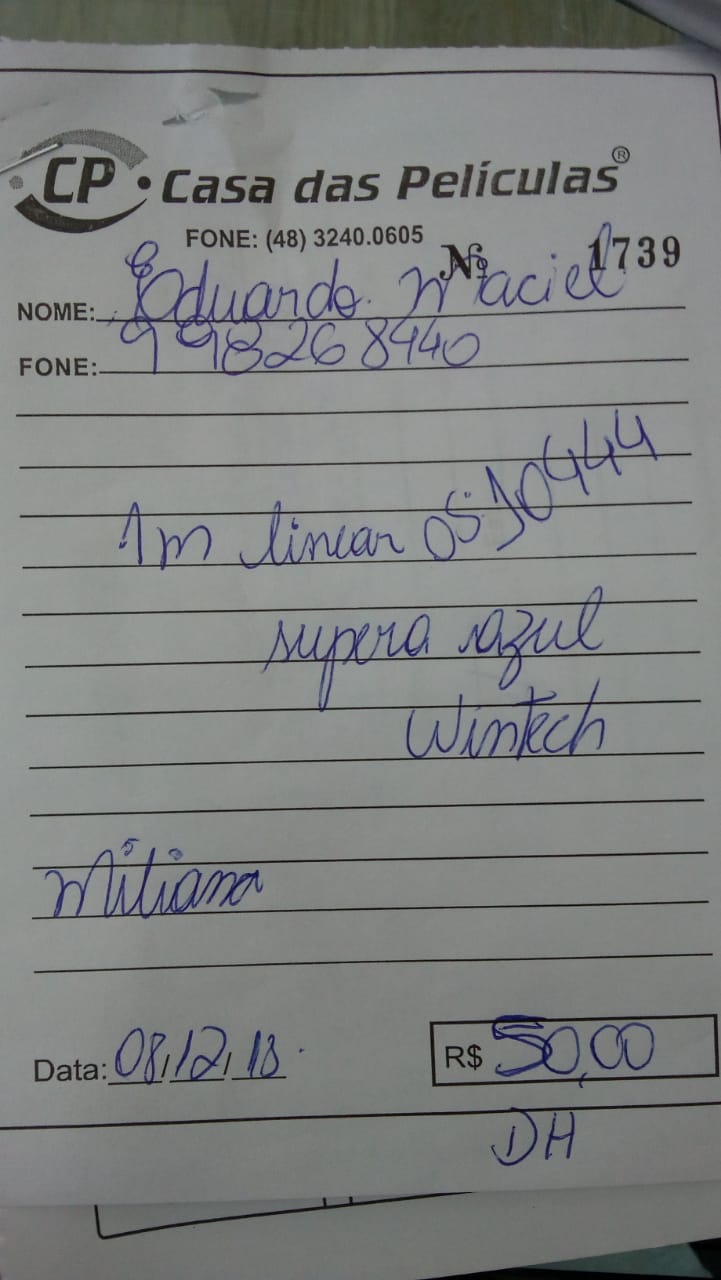 CP • Casa das Películas®
FONE: (48) 3240.0605
Nº 1739
NOME: Eduardo Maciel
FONE: 998268440
1m linear 0510444
supera azul
Wintech
Miliana
Data: 08/12/18
R$ 50,00
DH